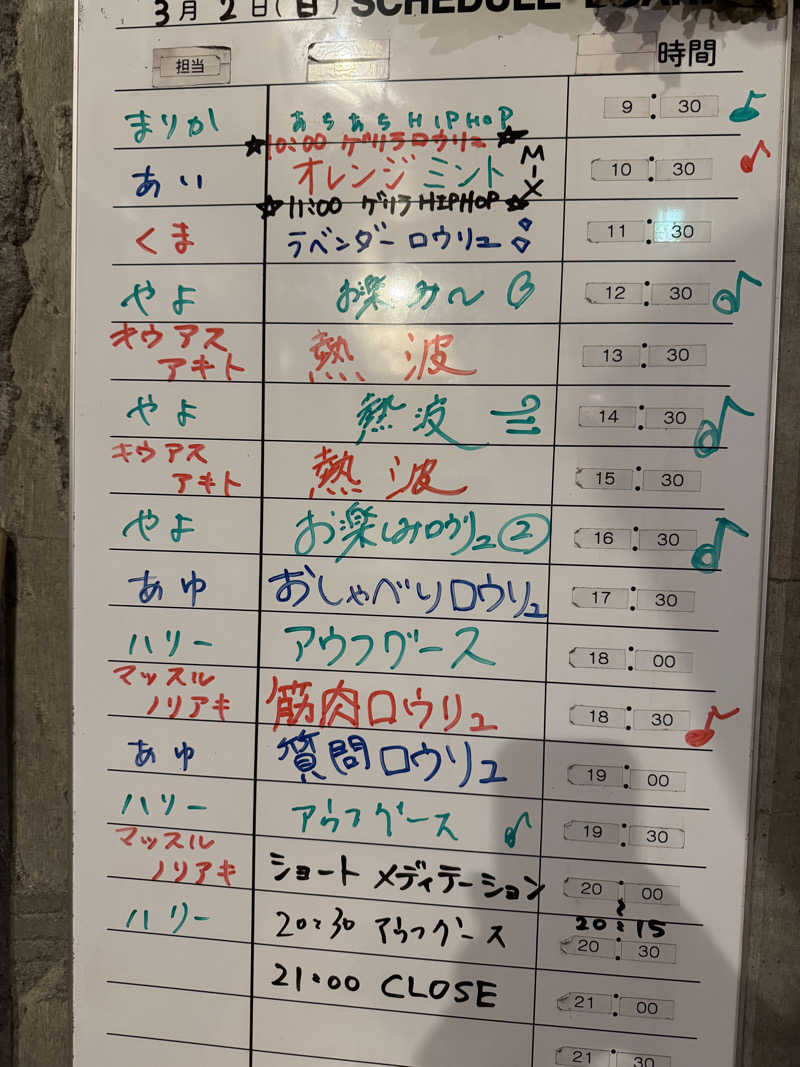 3月 2日(日) SCHEDULE BOARD
担当 時間
まりか あちあちHIPHOP 9:30
☆10:00 ゲリラロウリュ☆
あい オレンジミント MIX 10:30
☆11:00 ゲリラHIPHOP☆
くま ラベンダーロウリュ 11:30
やよ お楽み〜 12:30
オウアス
アキト 熱波 13:30
やよ 熱波 14:30
キウアス
アキト 熱波 15:30
やよ お楽しみロウリュ② 16:30
あゆ おしゃべりロウリュ 17:30
ハリー アウフグース 18:00
マッスル
ノリアキ 筋肉ロウリュ 18:30
あゆ 質問ロウリュ 19:00
ハリー アウフグース 19:30
マッスル
ノリアキ ショートメディテーション 20:00
〜
20:15
ハリー 20:30 アウフグース 20:30
21:00 CLOSE 21:00
21:30